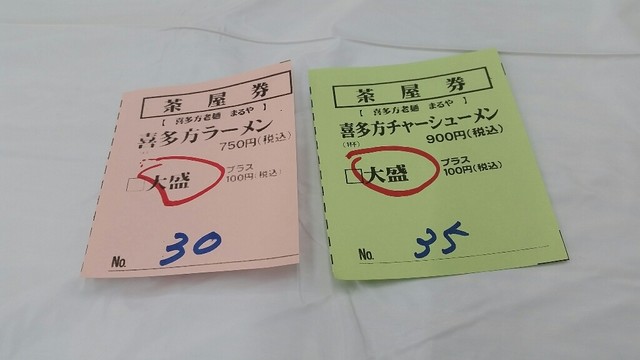 茶屋券
【 喜多方老麺 まるや 】
喜多方ラーメン
750円(税込)
大盛
プラス
100円(税込)
No. 30
茶屋券
【 喜多方老麺 まるや 】
喜多方チャーシューメン
(1杯)
900円(税込)
大盛
プラス
100円(税込)
No. 35